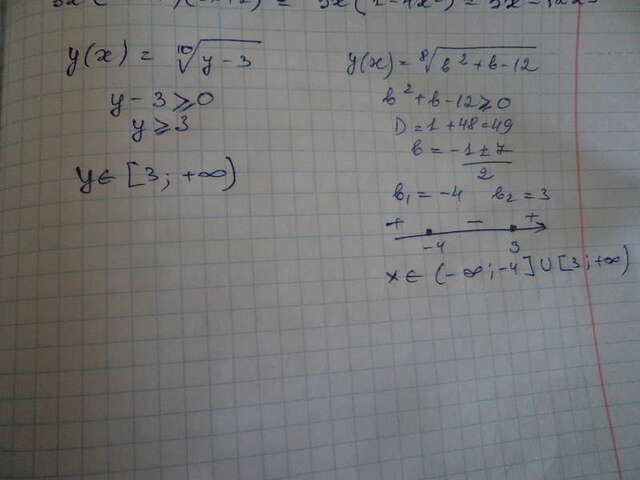 y(x) = ¹⁰√(y - 3)
y - 3 ⩾ 0
y ⩾ 3
y ∈ [3; +∞)
y(x) = ⁸√(b² + b - 12)
b² + b - 12 ⩾ 0
D = 1 + 48 = 49
b = (-1 ± 7)/2
b₁ = -4 b₂ = 3
+ - +
-4 3
x ∈ (-∞; -4] ∪ [3; +∞)